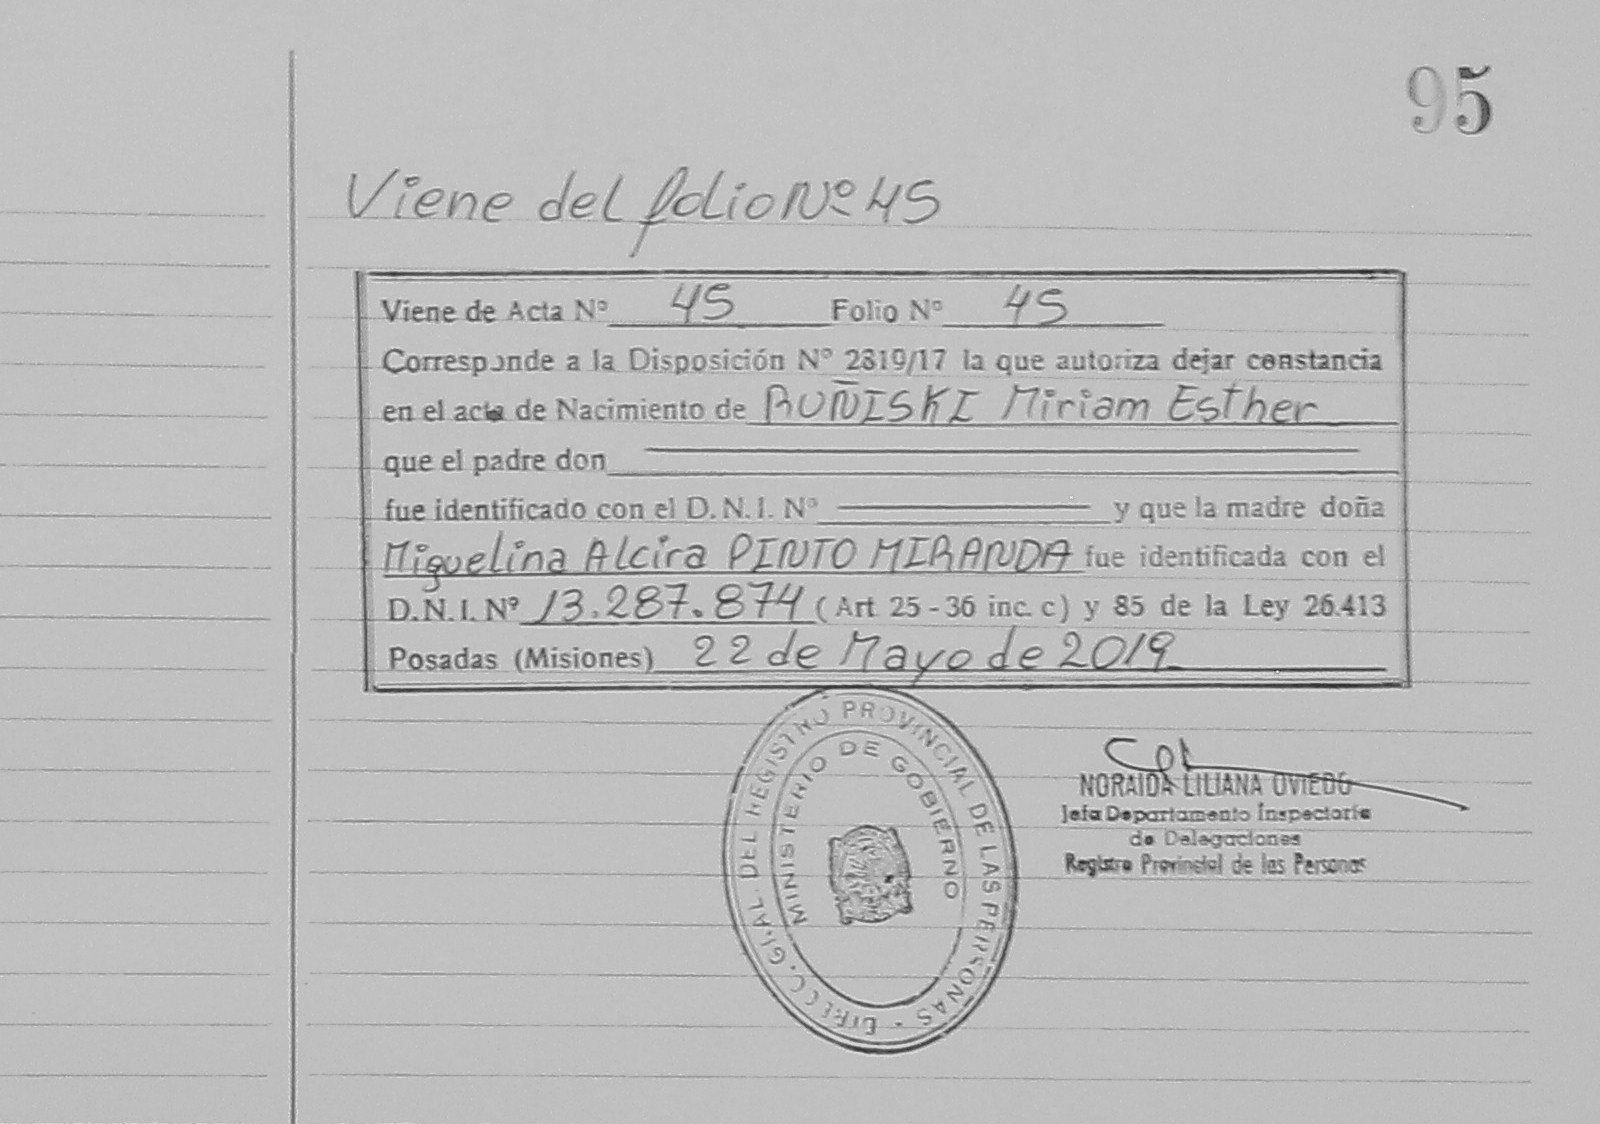 95
Viene del folio Nº 45
Viene de Acta Nº 45 Folio Nº 45
Corresponde a la Disposición Nº 2819/17 la que autoriza dejar constancia
en el acta de Nacimiento de RUÑISKI Miriam Esther
que el padre don
fue identificado con el D.N.I. Nº y que la madre doña
Miguelina Alcira PINTO MIRANDA fue identificada con el
D.N.I. Nº 13.287.874 (Art 25 - 36 inc. c) y 85 de la Ley 26.413
Posadas (Misiones) 22 de Mayo de 2019
DIRECC. GRAL. DEL REGISTRO PROVINCIAL DE LAS PERSONAS -
MINISTERIO DE GOBIERNO
NORAIDA LILIANA OVIEDO
Jefa Departamento Inspectoría
de Delegaciones
Registro Provincial de las Personas